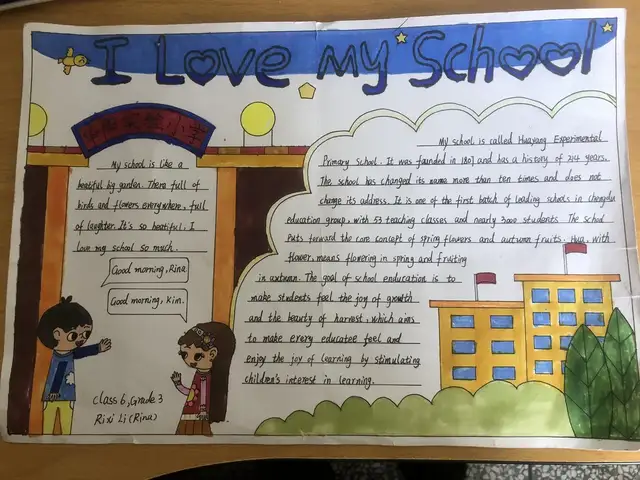 I Love my School
华阳实验小学
My school is like a
beatiful big garden. There full of
birds and flowers everywhere, full
of laughter. It's so beatiful. I
love my school so much.
Good morning, Rina
Good morning, Kim.
class 6, Grade 3
Rixi Li (Rina)
My school is called Huayang Experimental
Primary School. It was founded in 1807 and has a history of 214 years.
The school has changed its name more than ten times and does not
change its address. It is one of the first batch of leading schools in chengdu
education group, with 53 teaching classes and nearly 3000 students. The school
puts forward the core concept of spring flowers and autumn fruits. Hua, with
flower, means flowering in spring and fruiting
in autumn. The goal of school enducation is to
make students feel the joy of growth
and the beauty of harvest, which aims
to make every educatee feel and
enjoy the joy of learning by stimulating
children's interest in learning.